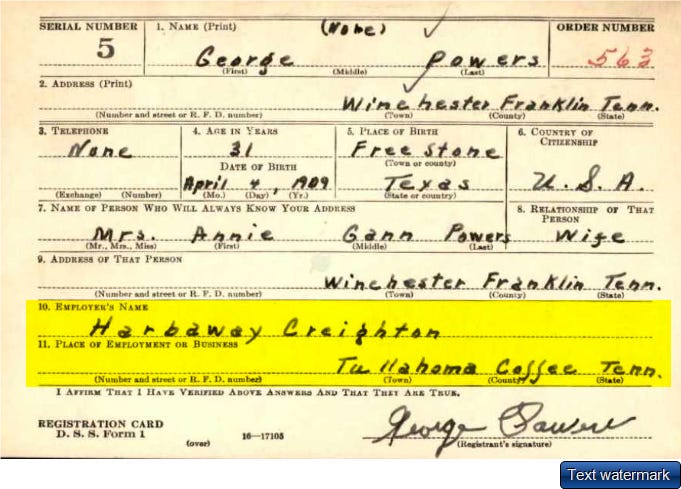 SERIAL NUMBER
5
1. NAME (Print)
(None)
ORDER NUMBER
563
George Powers
(First) (Middle) (Last)
2. ADDRESS (Print)
Winchester Franklin Tenn.
(Number and street or R. F. D. number) (Town) (County) (State)
3. TELEPHONE
None
(Exchange) (Number)
4. AGE IN YEARS
31
DATE OF BIRTH
April 4, 1909
(Mo.) (Day) (Yr.)
5. PLACE OF BIRTH
Free stone
(Town or county)
Texas
(State or country)
6. COUNTRY OF
CITIZENSHIP
U. S. A.
7. NAME OF PERSON WHO WILL ALWAYS KNOW YOUR ADDRESS
Mrs. Annie Gann Powers
(Mr., Mrs., Miss) (First) (Middle) (Last)
8. RELATIONSHIP OF THAT
PERSON
Wife
9. ADDRESS OF THAT PERSON
Winchester Franklin Tenn.
(Number and street or R. F. D. number) (Town) (County) (State)
10. EMPLOYER'S NAME
Harbaway Creighton
11. PLACE OF EMPLOYMENT OR BUSINESS
Tullahoma Coffee Tenn.
(Number and street or R. F. D. number) (Town) (County) (State)
I AFFIRM THAT I HAVE VERIFIED ABOVE ANSWERS AND THAT THEY ARE TRUE.
REGISTRATION CARD
D. S. S. Form 1
(over)
16—17105
George Powers
(Registrant's signature)
Text watermark